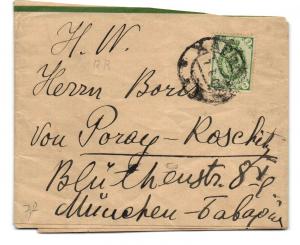 H. W.
RR
Herrn Boris
von Poray-Roschitz
Blüthenstr. 8
München-Бавария